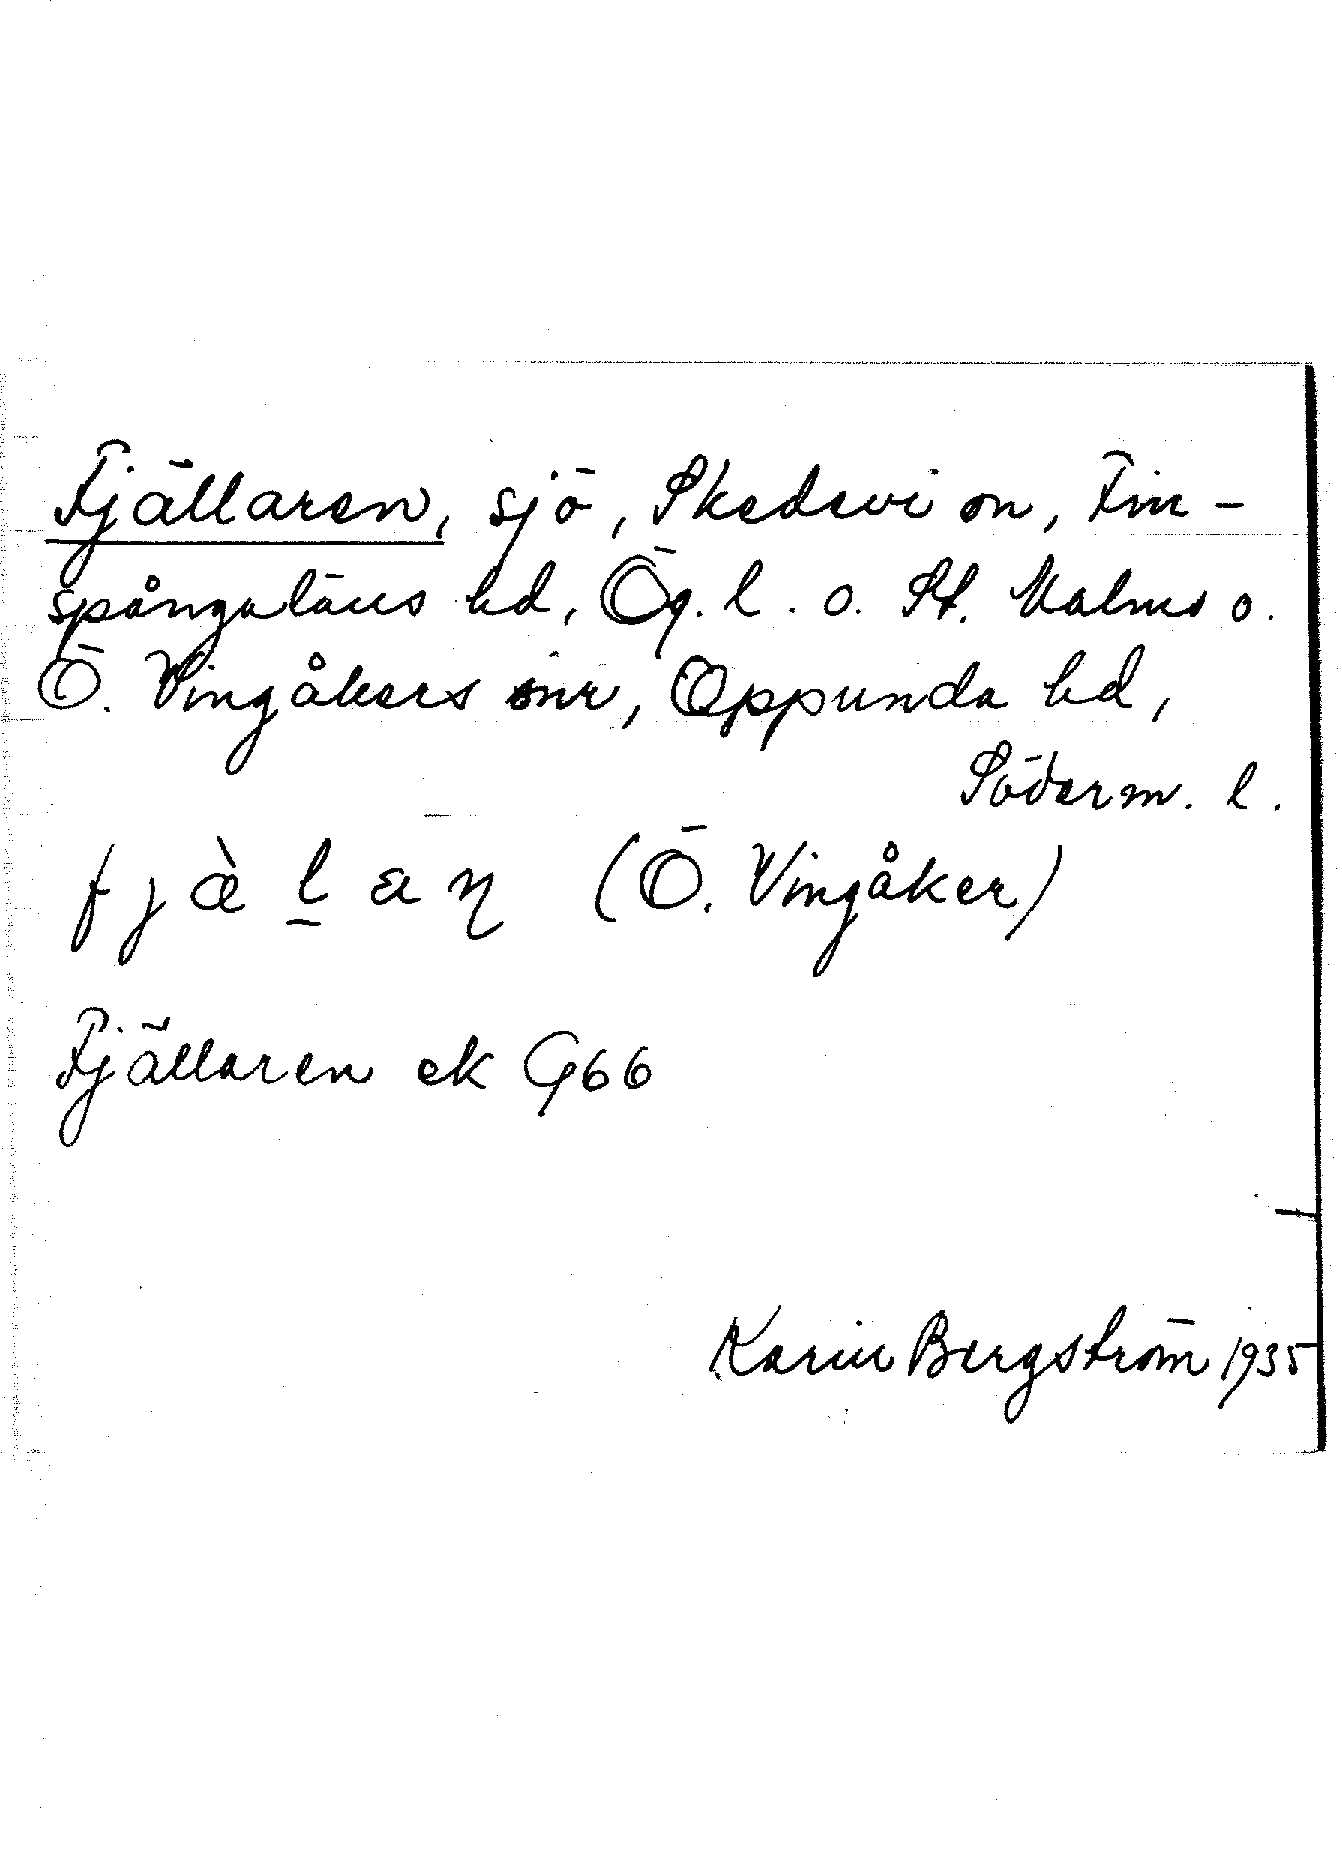 Fjällaren, sjö, Skedevi sn, Fin-
spångaläns hd, Ög. l. o. St. Malms o.
Ö. Vingåkers snr, Oppunda hd,
Söderm. l.
fjæ̀l̲aɳ (Ö. Vingåker)
Fjällaren ek G66
Karin Bergström 1935